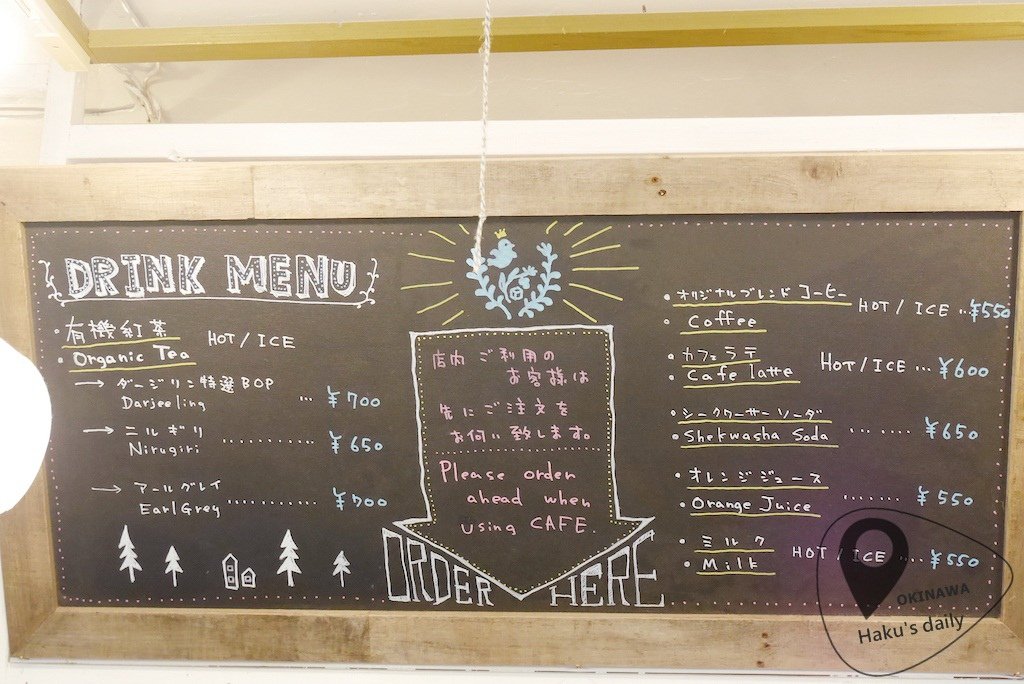 DRINK MENU
・有機紅茶
・Organic Tea HOT / ICE
→ ダージリン特選BOP
Darjeeling ... ¥700
→ ニルギリ
Nirugiri ........... ¥650
→ アールグレイ
Earl Grey ........... ¥700
店内ご利用の
お客様は
先にご注文を
お伺い致します。
Please order
ahead when
using CAFE.
ORDER HERE
・オリジナルブレンドコーヒー
・Coffee HOT / ICE ...¥550
・カフェラテ
・Cafe latte HOT / ICE ... ¥600
・シークワーサーソーダ
・Shekwasha Soda ....... ¥650
・オレンジジュース
・Orange Juice ...... ¥550
・ミルク
・Milk HOT / ICE .... ¥550
OKINAWA
Haku's daily